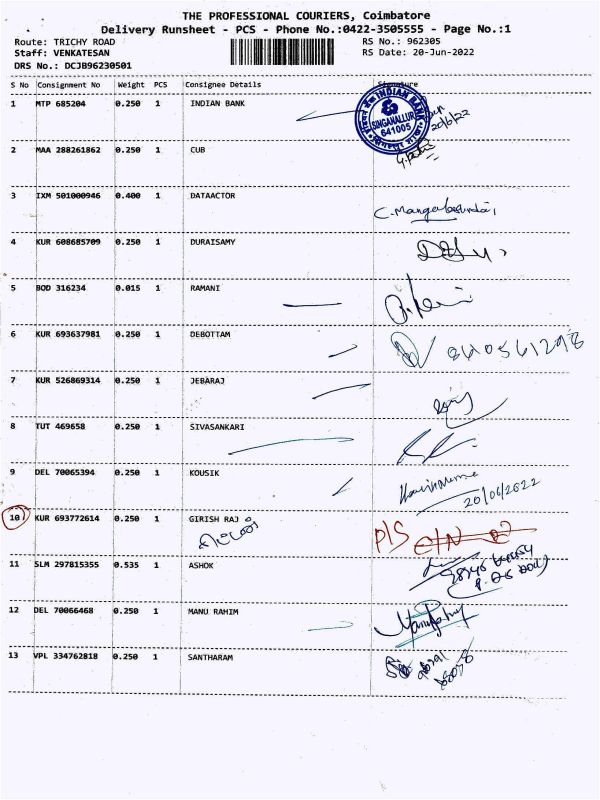 THE PROFESSIONAL COURIERS, Coimbatore
Delivery Runsheet - PCS - Phone No.:0422-3505555 - Page No.:1
Route: TRICHY ROAD RS No.: 962305
Staff: VENKATESAN RS Date: 20-Jun-2022
DRS No.: DCJB96230501
S No Consignment No Weight PCS Consignee Details Signature
1 MTP 685204 0.250 1 INDIAN BANK
INDIAN BANK
SINGANALLUR
641005
20/6/22
2 MAA 288261862 0.250 1 CUB
3 IXM 501000946 0.400 1 DATAACTOR
4 KUR 608685709 0.250 1 DURAISAMY
5 BOD 316234 0.015 1 RAMANI
6 KUR 693637981 0.250 1 DEBOTTAM
7 KUR 526869314 0.250 1 JEBARAJ
8 TUT 469658 0.250 1 SIVASANKARI
9 DEL 70065394 0.250 1 KOUSIK
20/06/2022
10 KUR 693772614 0.250 1 GIRISH RAJ P/S
11 SLM 297815355 0.535 1 ASHOK
12 DEL 70066468 0.250 1 MANU RAHIM
13 VPL 334762818 0.250 1 SANTHARAM